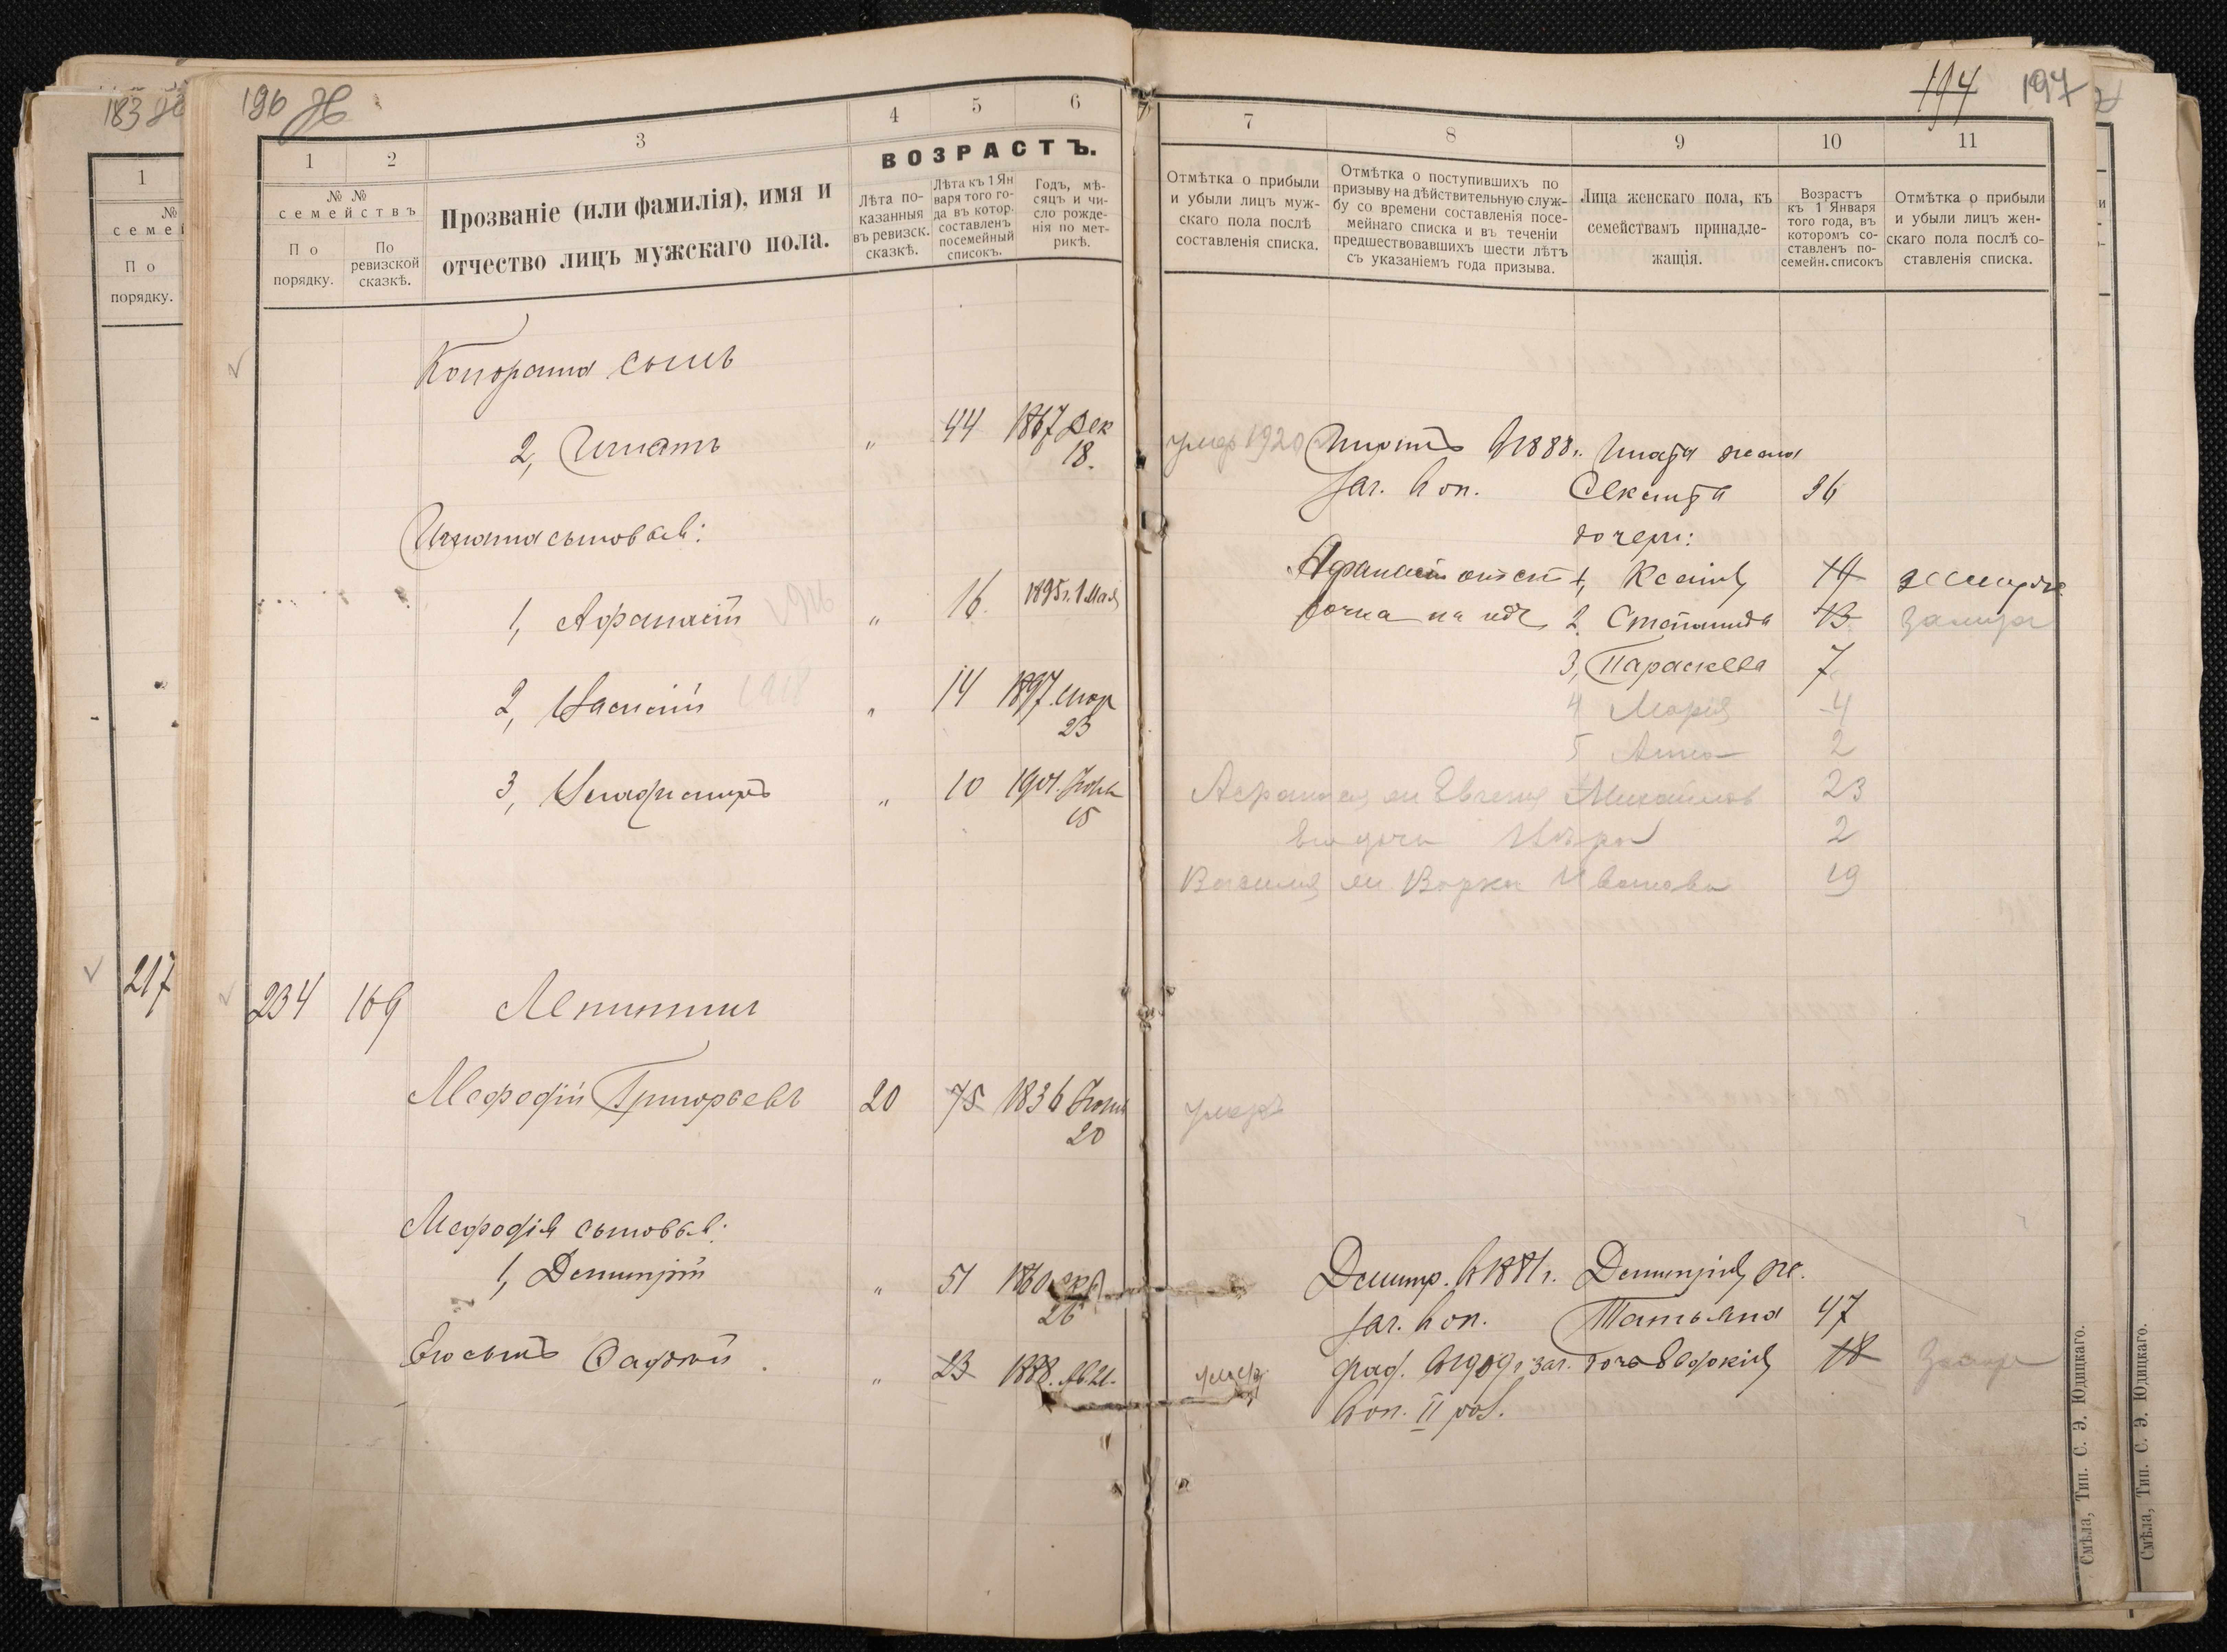 183
196
1
2
3
4
5
6
№ №
семействъ
По
порядку.
По
ревизской
сказкѣ.
Прозваніе (или фамилія), имя и
отчество лицъ мужскаго пола.
ВОЗРАСТЪ.
Лѣта по-
казанныя
въ ревизск.
сказкѣ.
Лѣта къ 1 Ян
варя того го-
да въ котор.
составленъ
посемейный
списокъ.
Годъ, мѣ-
сяцъ и чи-
сло рожде-
нія по мет-
рикѣ.
сынъ
2, Игнатъ " 44 1867 Дек
18.
Игната сыновья:
1, Афанасій " 16. 1895 г. 1 Мая
2, Василій 1918 " 14 1897. Мар
23
3, " 10 1901.
15
217
234 169
Мефодій Григорьевъ 20 75 1836
20
Мефодія сыновья:
1, Димитрій " 51 1860
26
Его сынъ " 23 1888.
194 197
7
8
9
10
11
Отмѣтка о прибыли
и убыли лицъ муж-
скаго пола послѣ
составленія списка.
Отмѣтка о поступившихъ по
призыву на дѣйствительную служ-
бу со времени составленія посе-
мейнаго списка и въ теченіи
предшествовавшихъ шести лѣтъ
съ указаніемъ года призыва.
Лица женскаго пола, къ
семействамъ принадле-
жащія.
Возрастъ
къ 1 Января
того года, въ
которомъ со-
ставленъ по-
семейн. списокъ
Отмѣтка о прибыли
и убыли лицъ жен-
скаго пола послѣ со-
ставленія списка.
умер 1920 Игнатъ в 1888 г. Игната жена
зач. в оп. 36
дочери:
1, Ксенія 17
2. Степанида 13
3, Параскева 7
4 Марія 4
5 Анна 2
Афанасія Евгенія Михайлов 23
его дочь 2
Василія Ивановна 19
умеръ
Димитр. в 1881 г. Димитрія ж.
зач. в оп. Татьяна 47
умеръ в 1909 г. зач. дочь Евдокія 18
в оп. II раз.
Смѣла, Тип. С. Э. Юдицкаго.
Смѣла, Тип. С. Э. Юдицкаго.